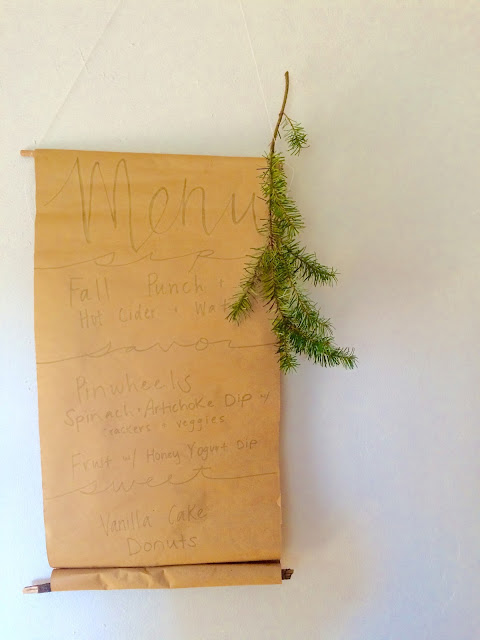 Menu
sip
Fall Punch
Hot Cider +
savor
Pinwheels
Spinach + Artichoke Dip w/
crackers + veggies
Fruit w/ Honey Yogurt Dip
sweet
Vanilla Cake
Donuts